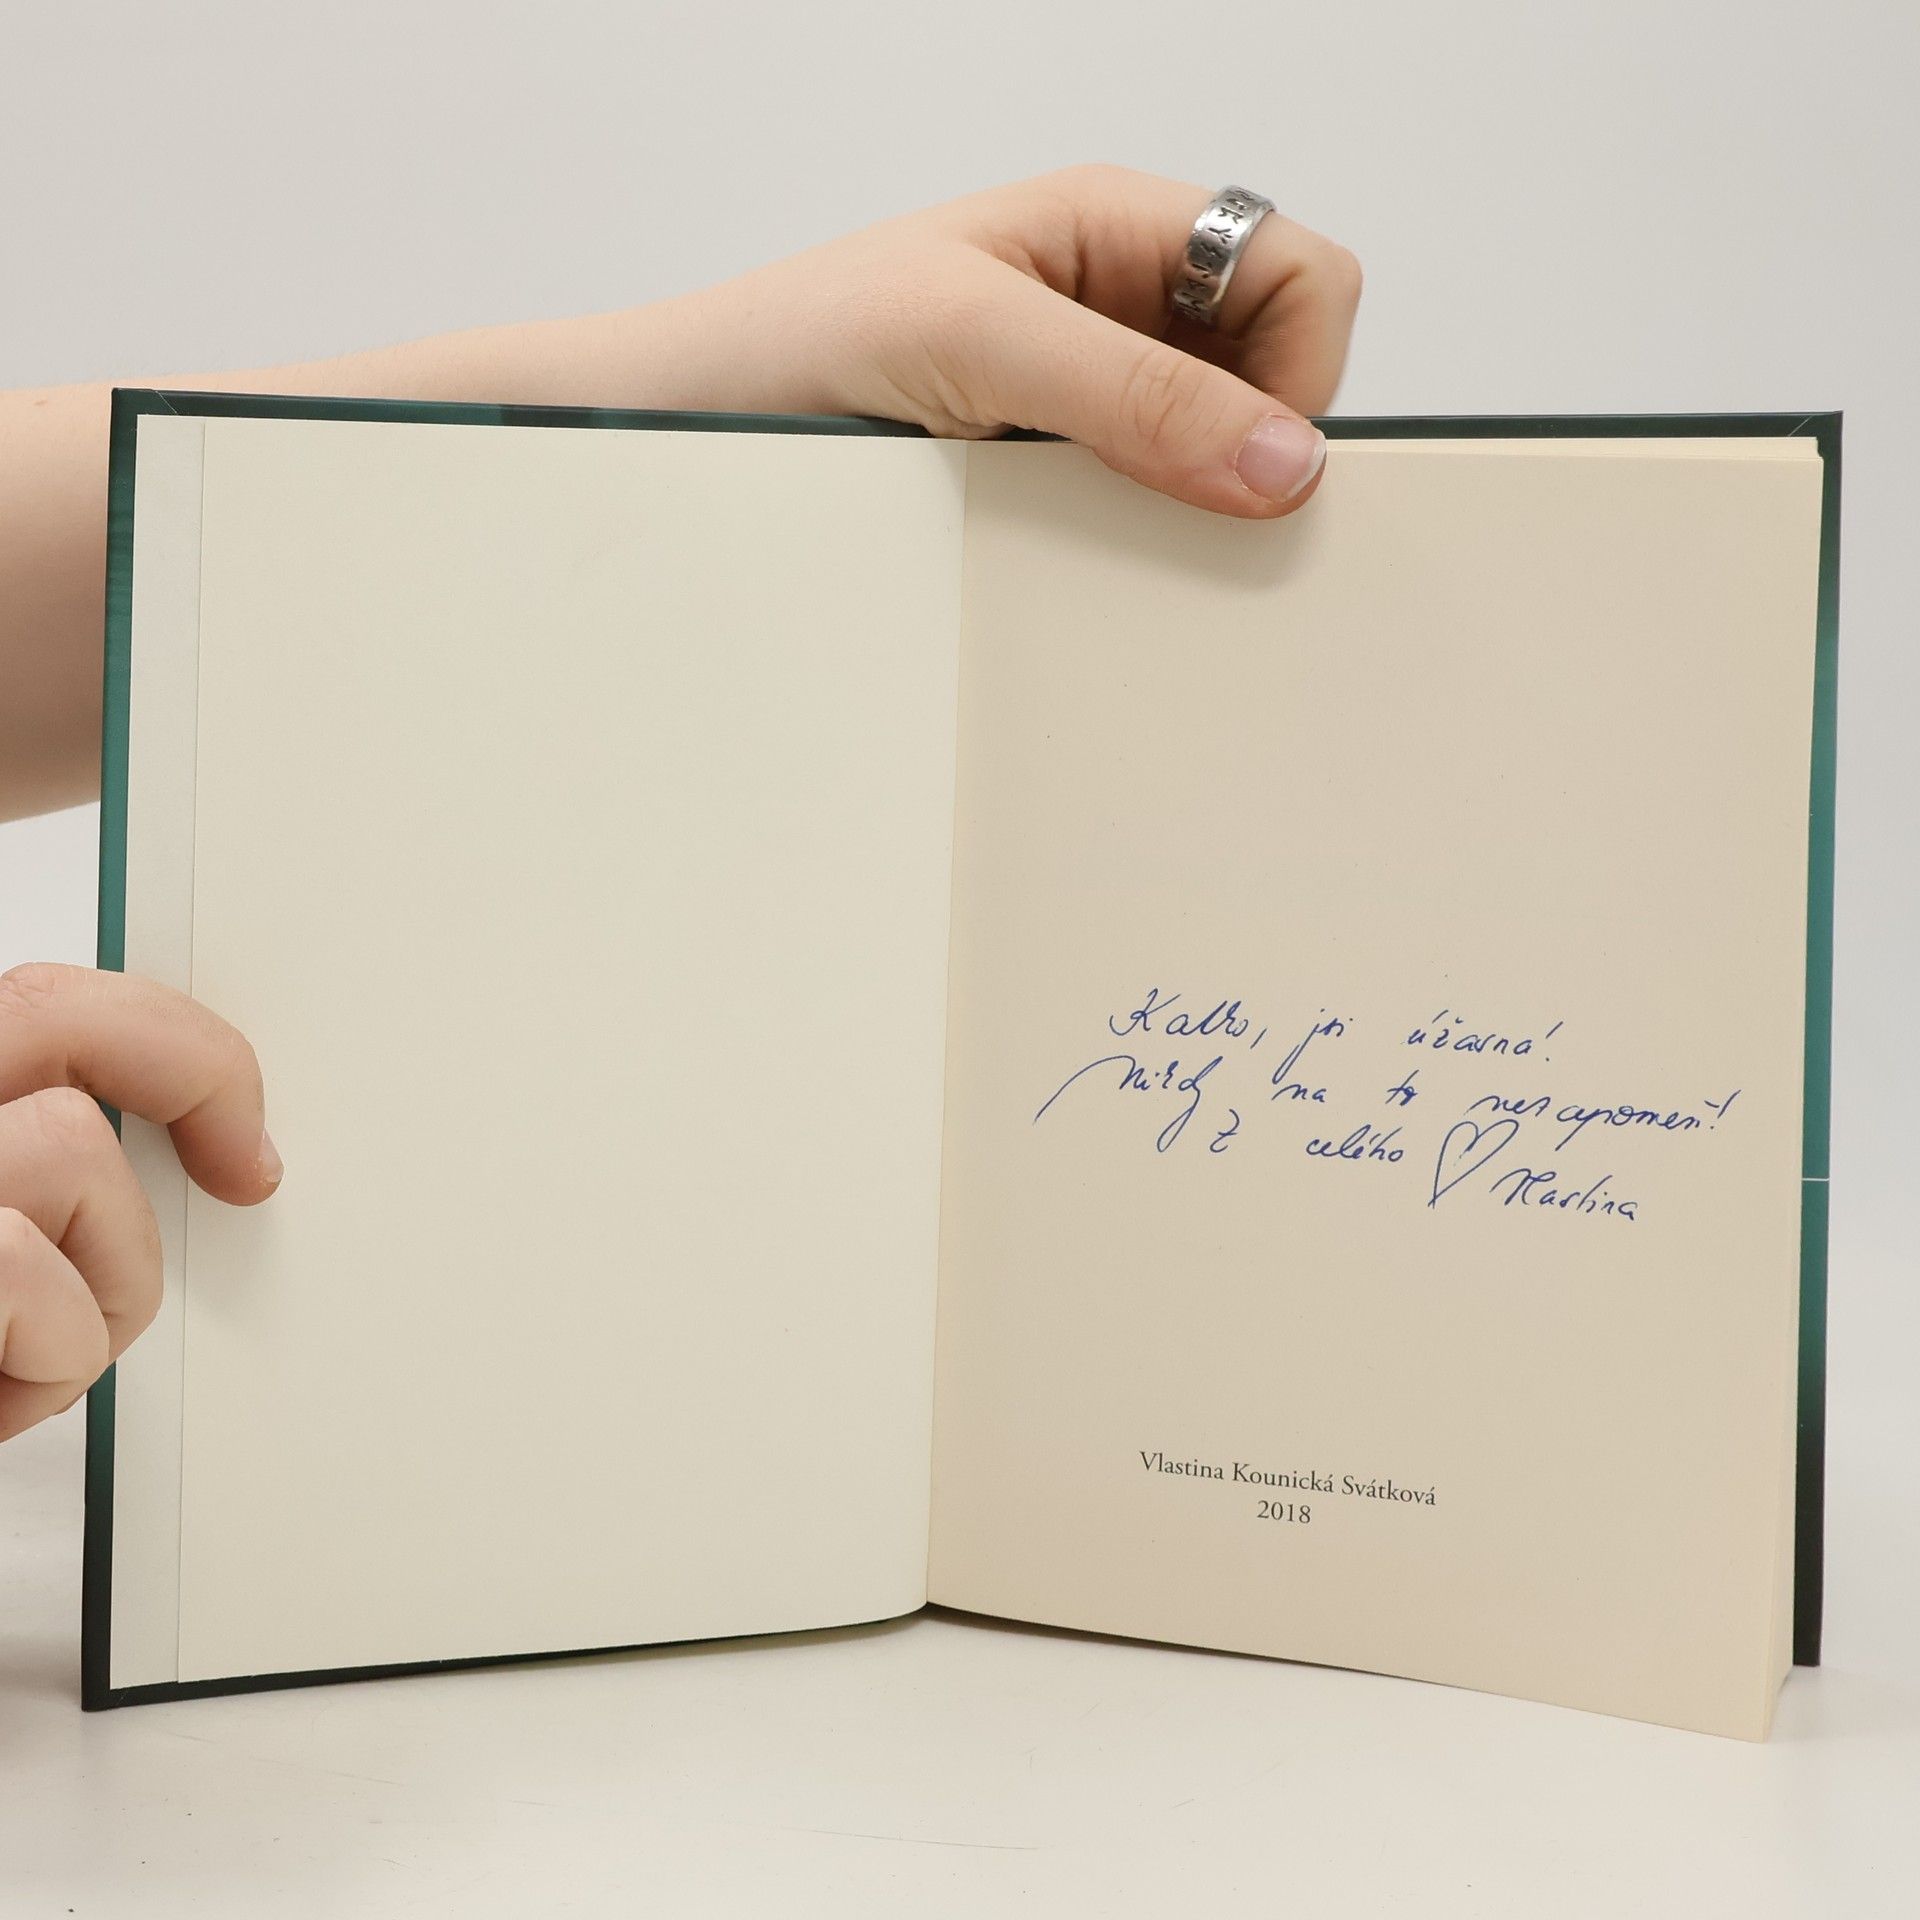 Katko, jsi úžasná!
Nikdy na to nezapomeň!
Z celého ♡ Vlastina
Vlastina Kounická Svátková
2018